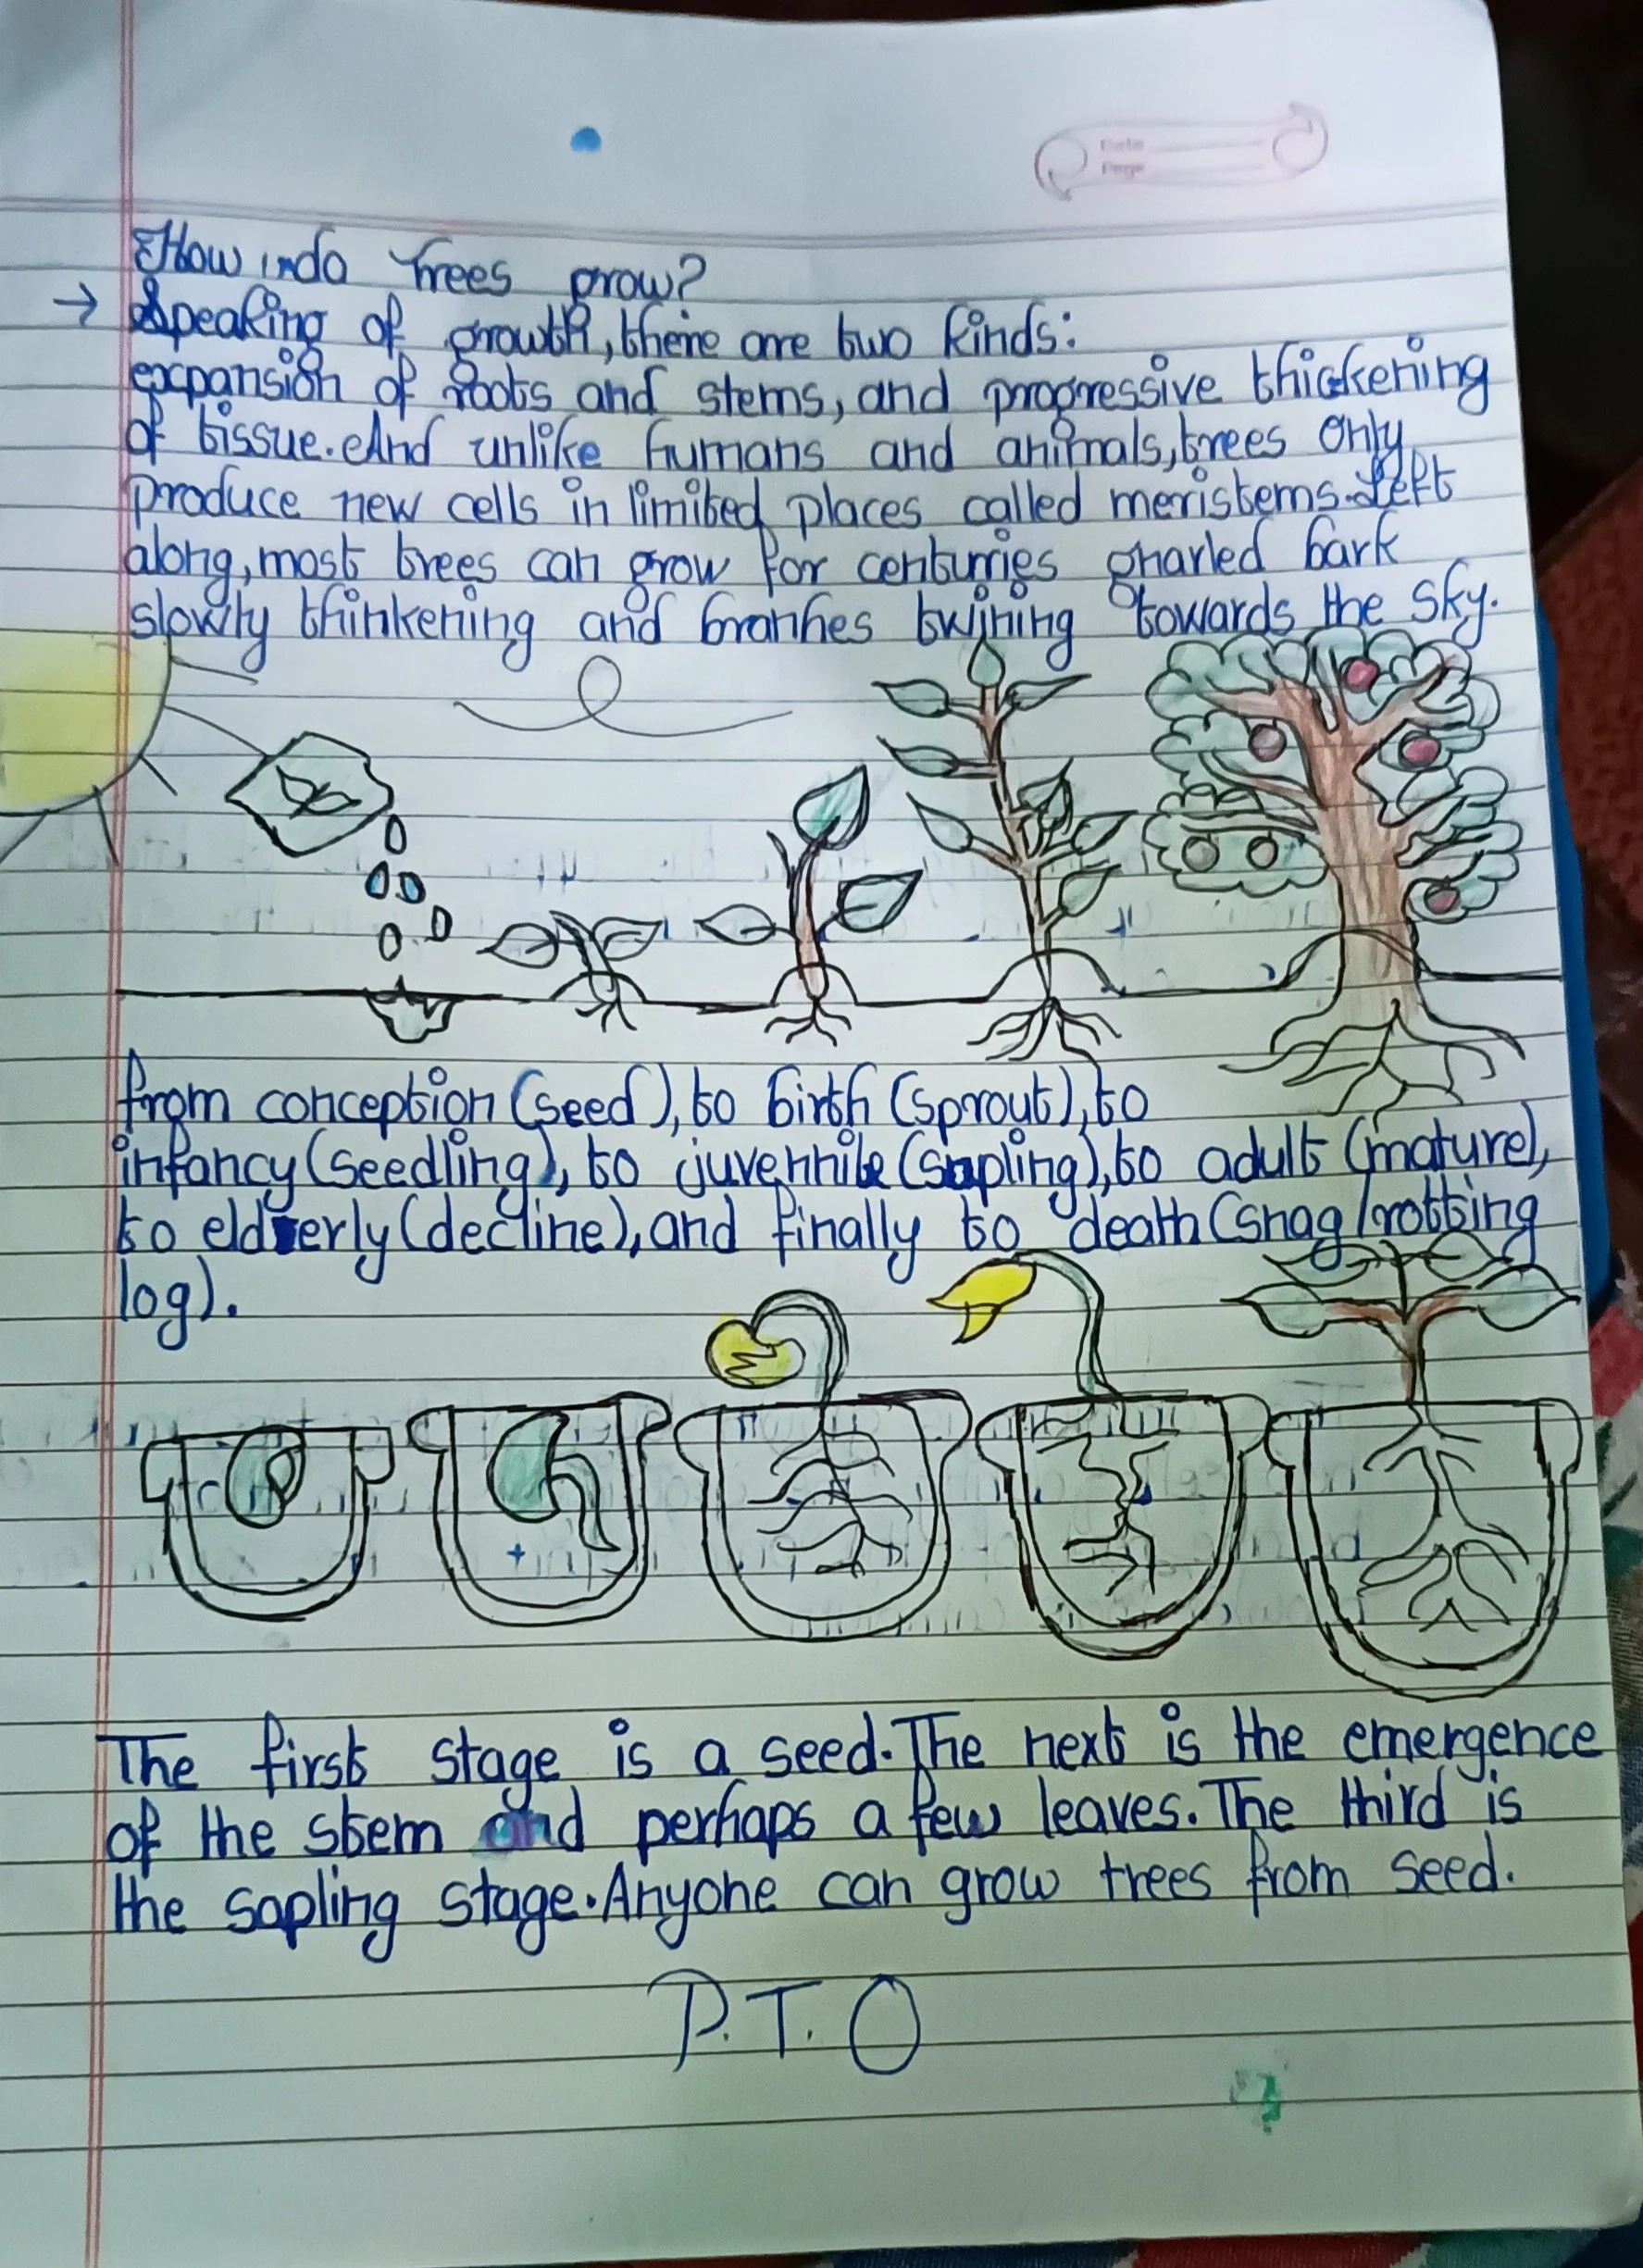 Date
Page
How indo Trees grow?
→ Speaking of growth, there are two kinds:
expansion of roots and stems, and progressive thickening
of tissue. And unlike humans and animals, trees only
produce new cells in limited places called meristems. Left
along, most trees can grow for centurries gnarled bark
slowly thinkening and branhes twining towards the sky.
from conception (seed), to birth (sprout), to
infancy (seedling), to juvennile (sapling), to adult (mature),
to elderly (decline), and finally to death (snag/rotting
log).
The first stage is a seed. The next is the emergence
of the stem and perhaps a few leaves. The third is
the sapling stage. Anyone can grow trees from seed.
P.T.O